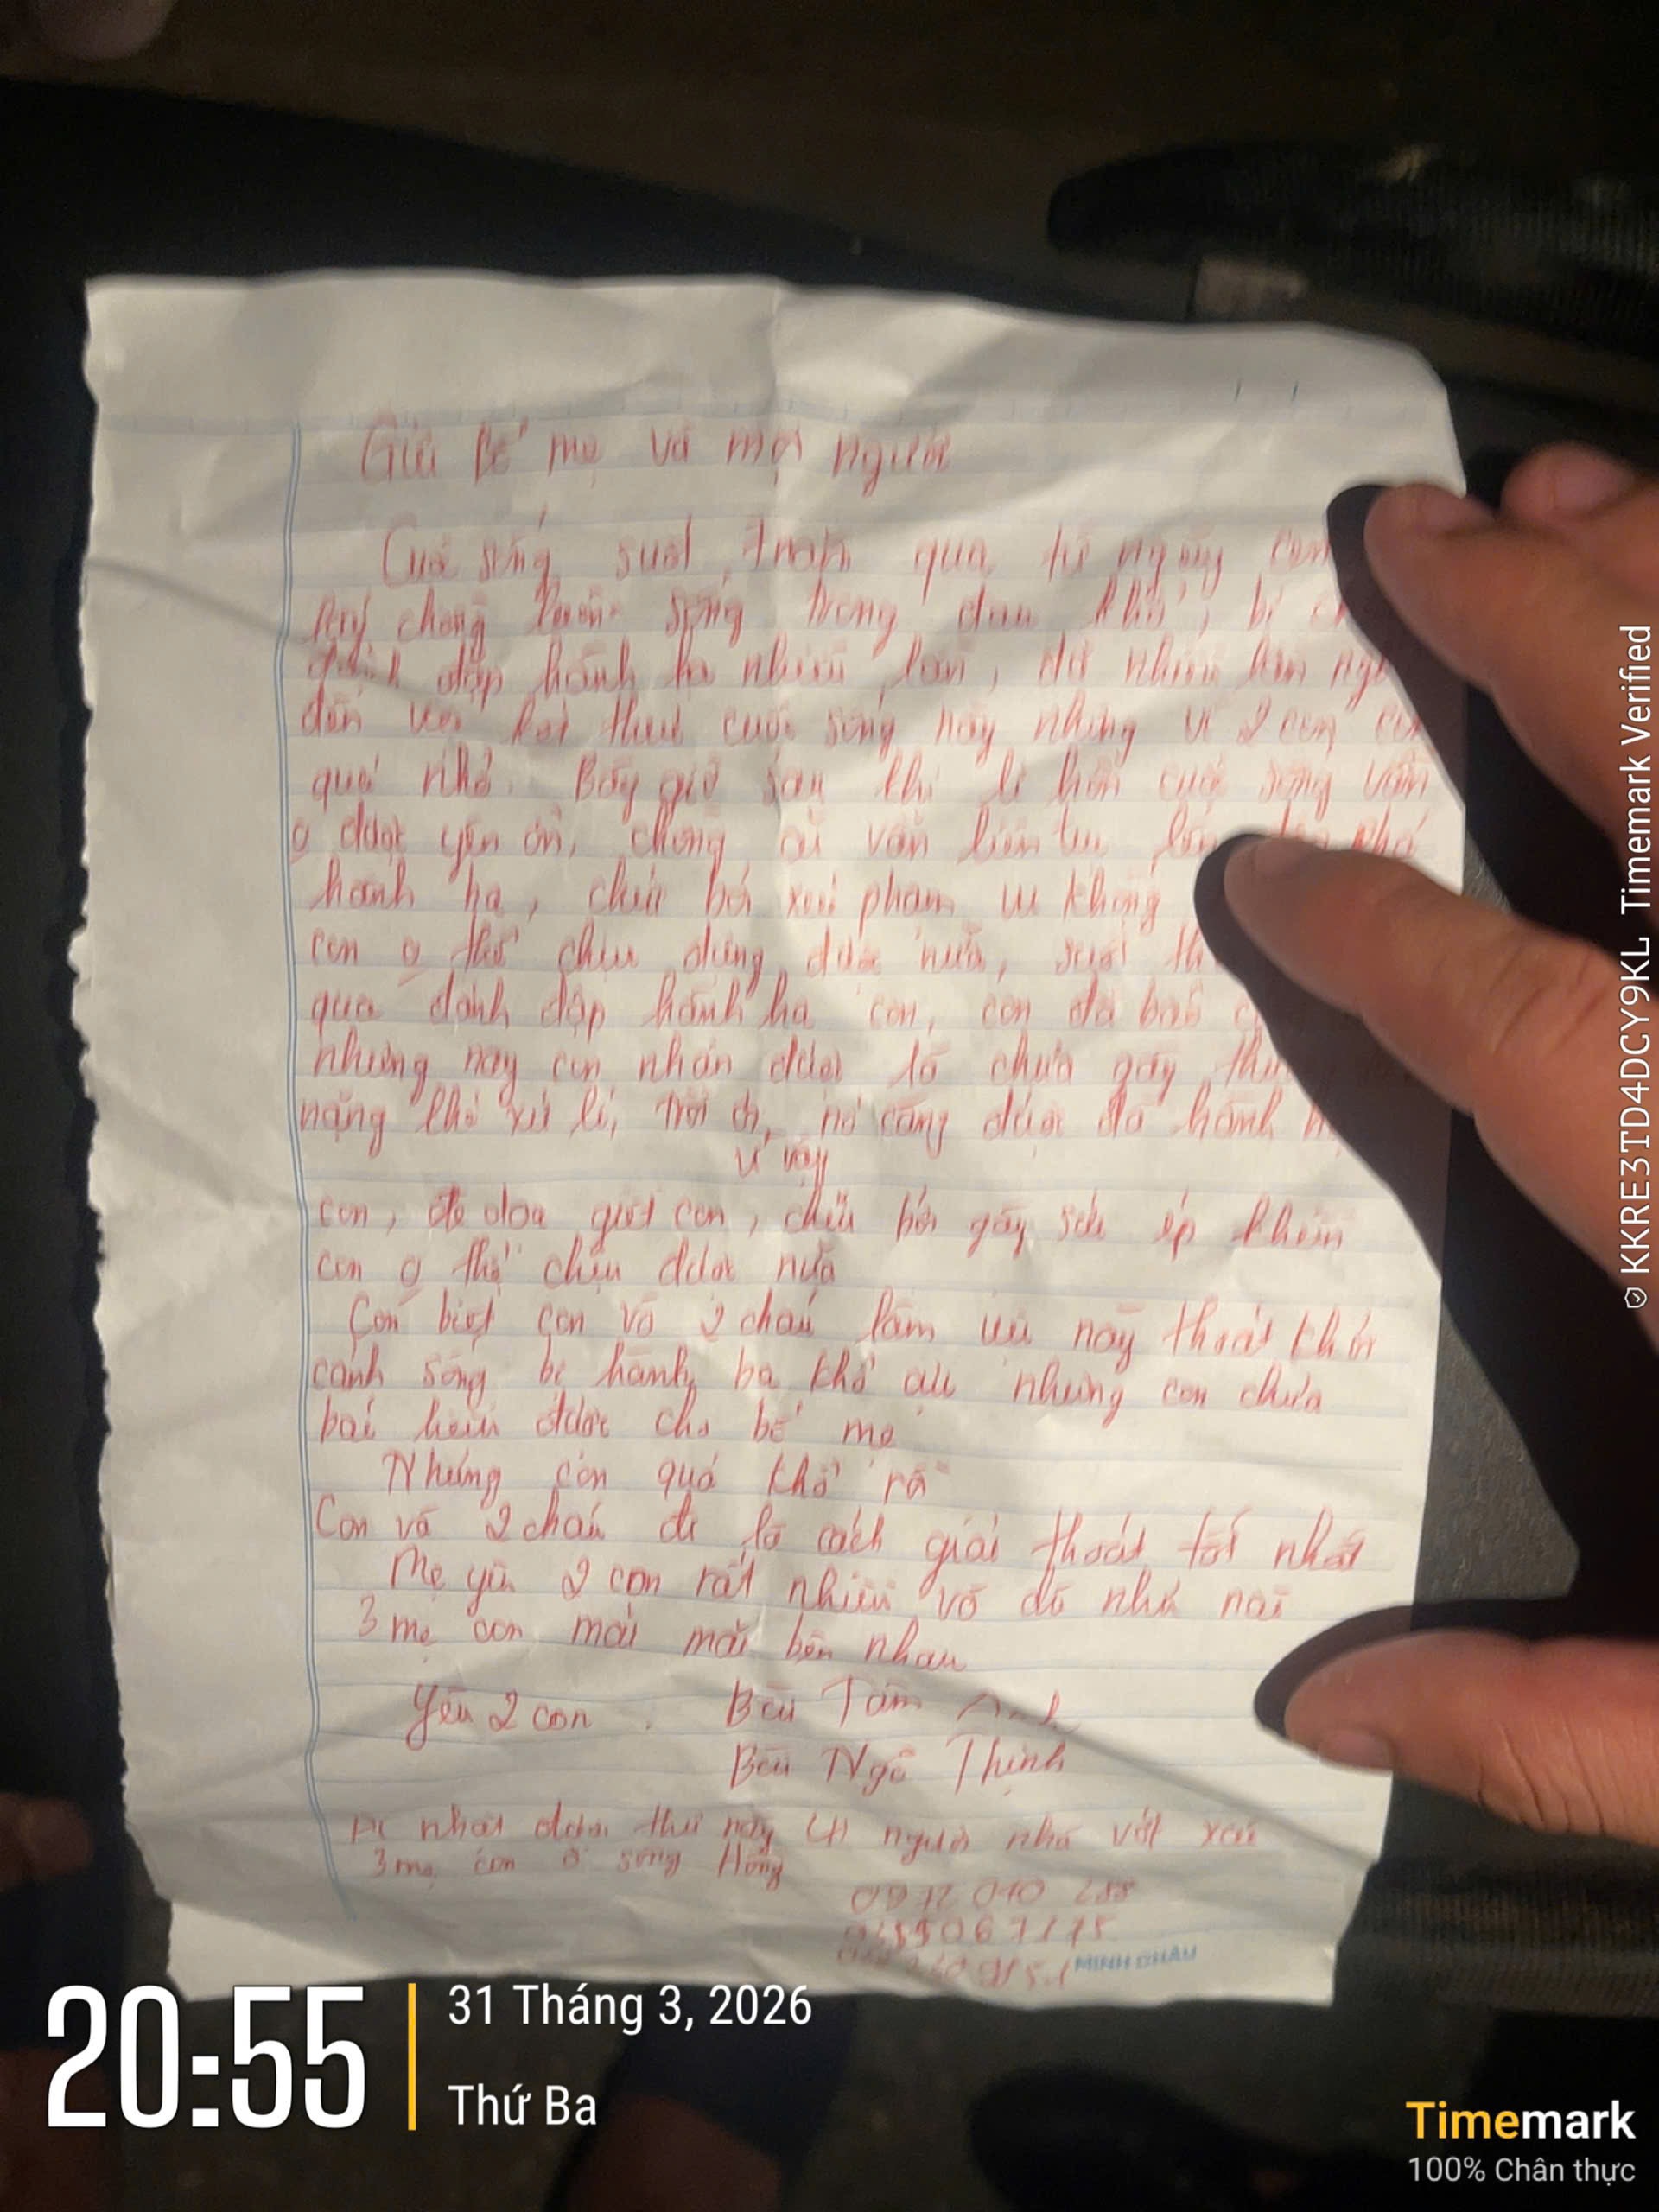 Gửi bố mẹ và mọi người
Cuộc sống suốt qua từ ngày con
lấy chồng luôn sống trong đau khổ, bị
đánh đập hành hạ nhiều lần, đã nhiều lần
đến kết thúc cuộc sống này nhưng vì 2 con còn
quá nhỏ. Bây giờ sau khi li hôn cuộc sống vẫn
0 được yên ổn, chồng cũ vẫn liên tục nhà
hành hạ, chửi bới xúc phạm vu khống
con 0 thể chịu đựng được nữa, suốt
qua đánh đập hành hạ con, con đã báo
nhưng nay con nhận được là chưa gây
nặng khó xử lí, vì vậy nó càng được đà hành
con, đe doạ giết con, chửi bới gây sức ép khiến
con 0 thể chịu được nữa
Con biết con và 2 cháu làm việc này thoát khỏi
cảnh sống bị hành hạ khổ ải nhưng con chưa
báo hiếu được cho bố mẹ
Nhưng con quá khổ rồi
Con và 2 cháu đi là cách giải thoát tốt nhất
Mẹ yêu 2 con rất nhiều và dù như nào
3 mẹ con mãi mãi bên nhau
Yêu 2 con. Bếu Tâm Anh
Bếu Ngô Thịnh
nhặt được thư này người nhà vớt xác
3 mẹ con ở sông Hồng
MINH CHÂU
20:55
31 Tháng 3, 2026
Thứ Ba
Timemark
100% Chân thực
KKRE3TD4DCY9KL Timemark Verified